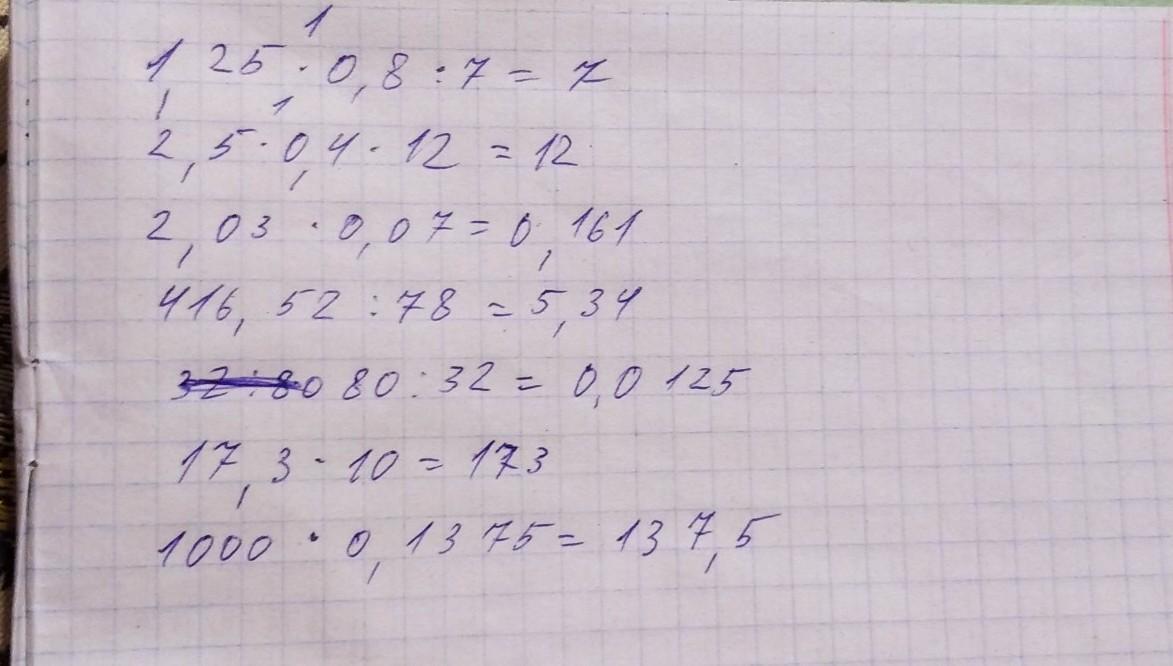 1
1,25 · 0,8 : 7 = 7
1
2,5 · 0,4 · 12 = 12
2,03 · 0,07 = 0,161
416,52 : 78 = 5,34
32 : 80 80 : 32 = 0,0125
17,3 · 10 = 173
1000 · 0,1375 = 137,5